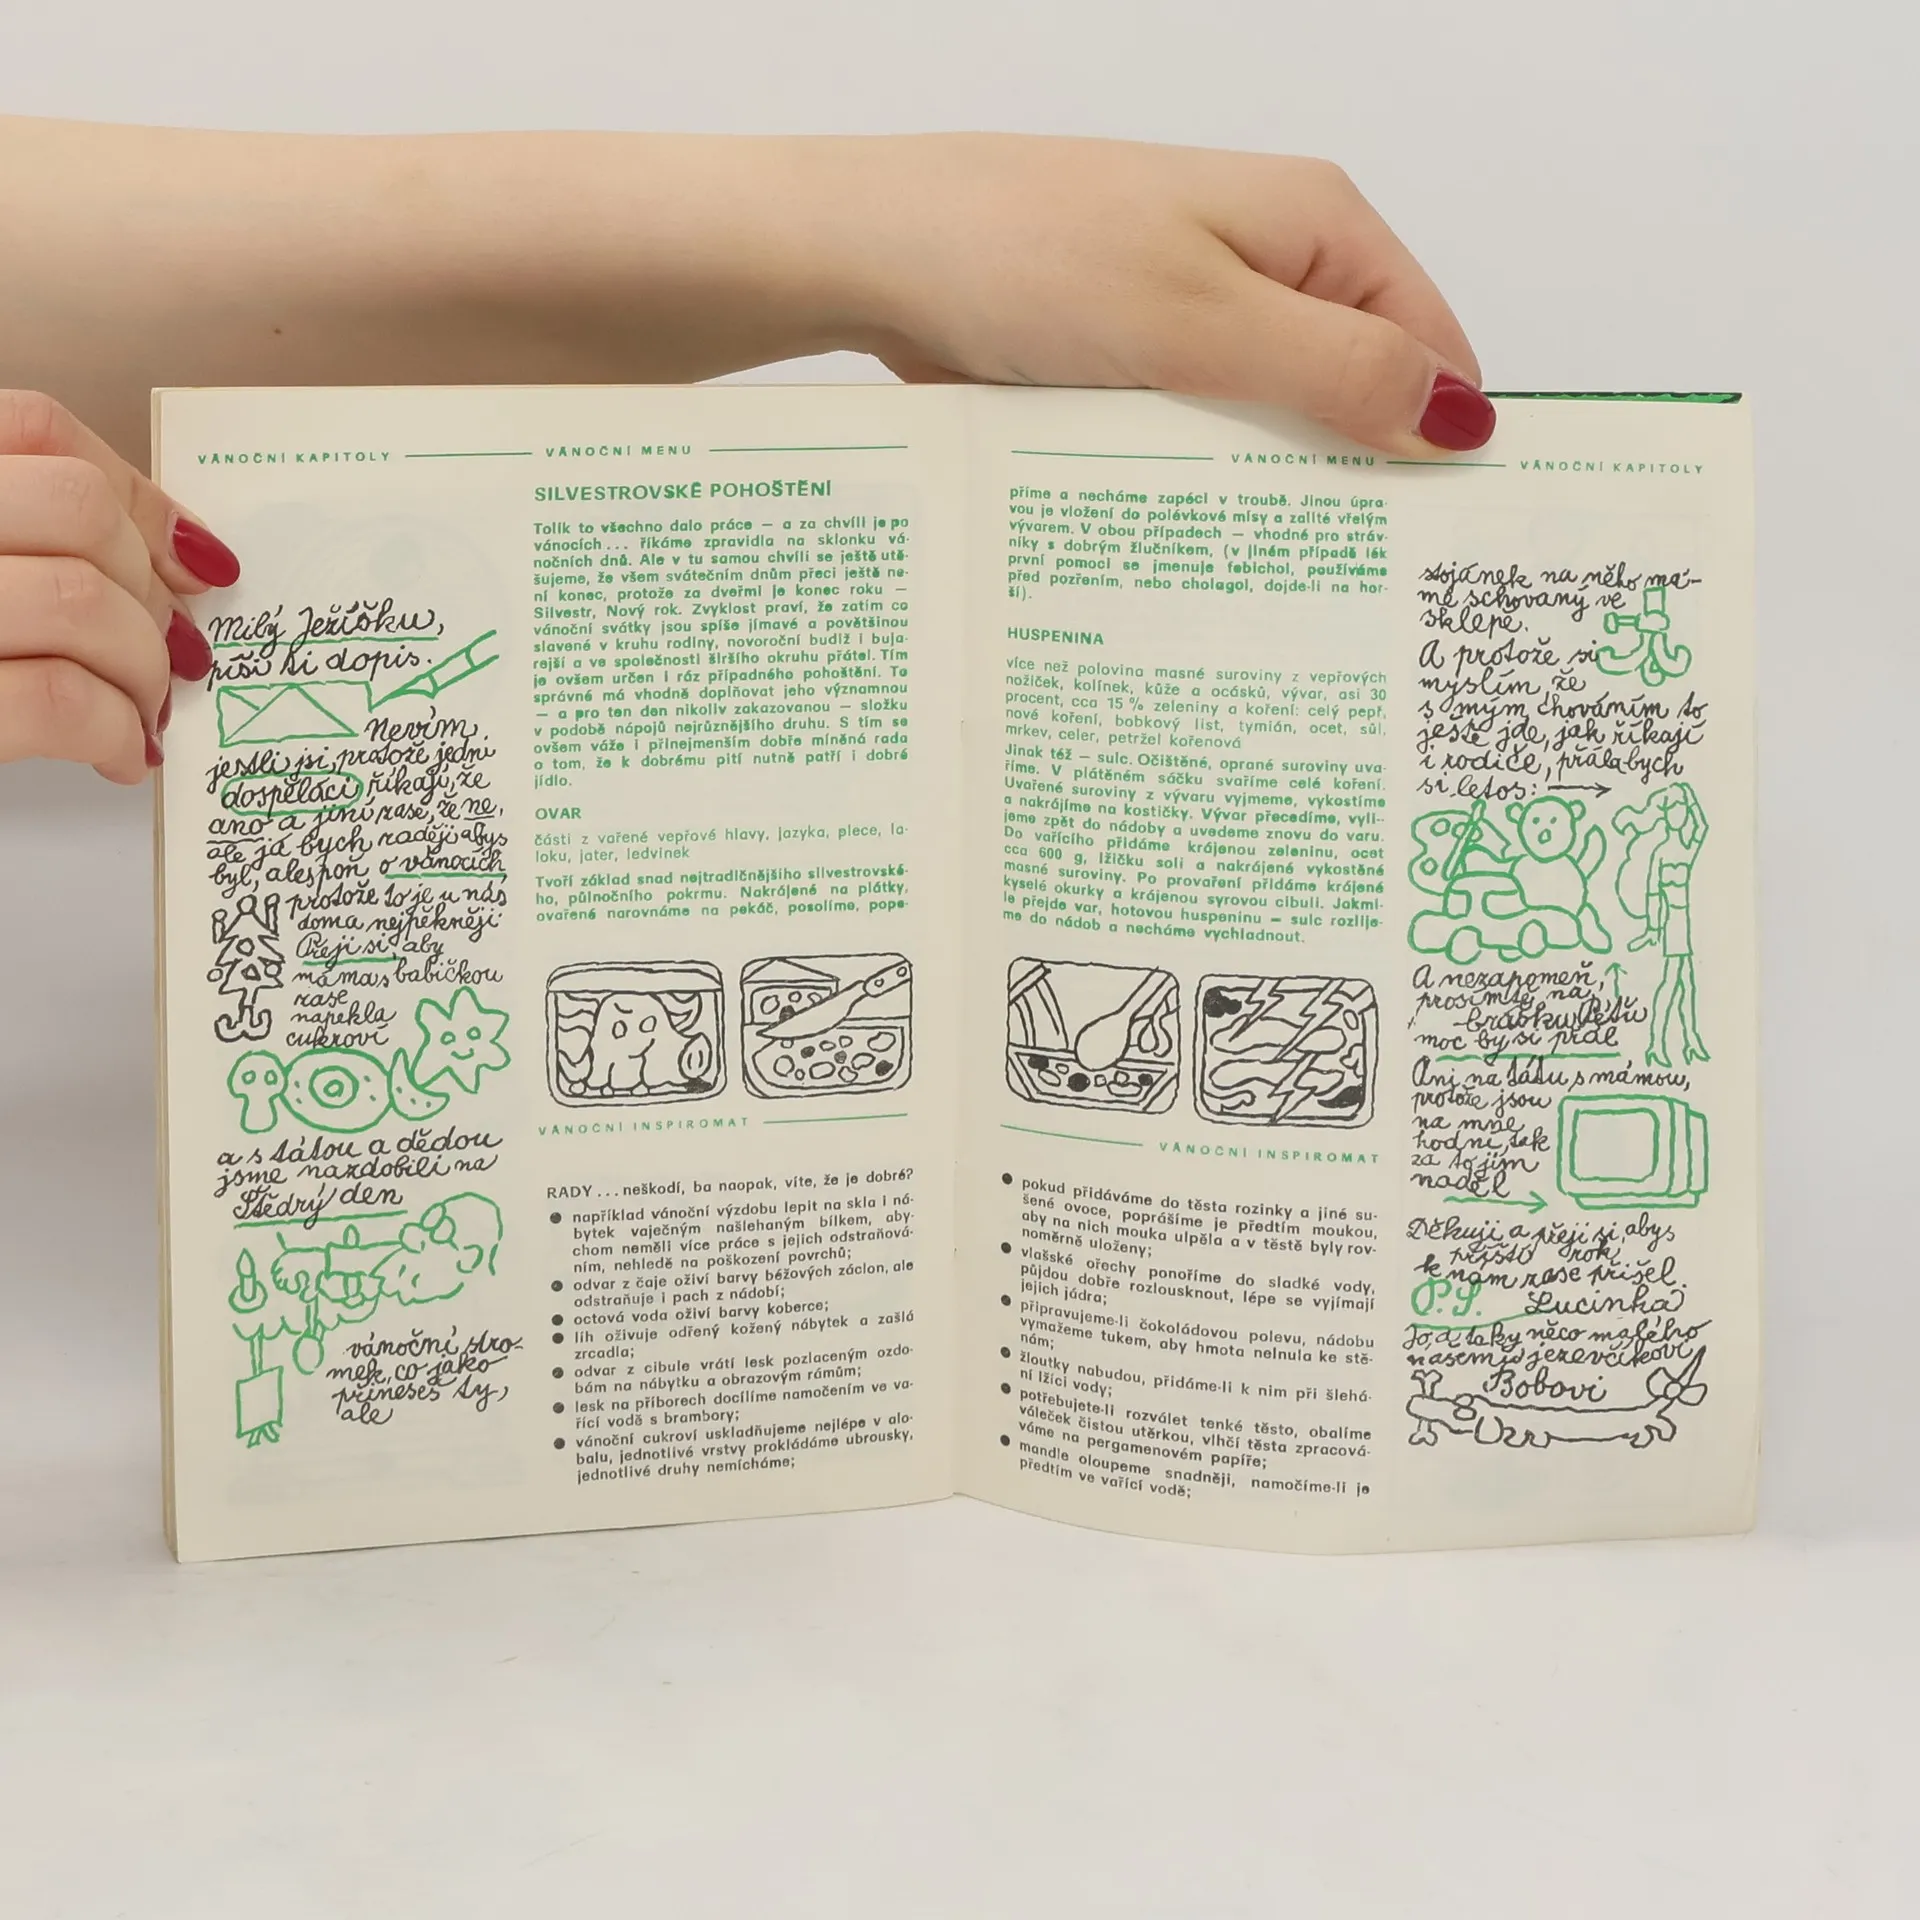 VÁNOČNÍ KAPITOLY
Milý Ježíšku,
píši ti dopis.
Nevím,
jestli jsi, protože jedni
dospěláci říkají, že
ano a jiní zase, že ne,
ale já bych raději abys
byl, alespoň o vánocích,
protože to je u nás
doma nejpěkněji.
Přeji si, aby
máma s babičkou
zase
napekla
cukroví
a s tátou a dědou
jsme nazdobili na
Štědrý den
vánoční stro-
mek, co jako
přineseš ty,
ale
VÁNOČNÍ MENU
SILVESTROVSKÉ POHOŠTĚNÍ
Tolik to všechno dalo práce — a za chvíli je po
vánocích... říkáme zpravidla na sklonku vá-
nočních dnů. Ale v tu samou chvíli se ještě utě-
šujeme, že všem svátečním dnům přeci ještě ne-
ní konec, protože za dveřmi je konec roku —
Silvestr, Nový rok. Zvyklost praví, že zatím co
vánoční svátky jsou spíše jímavé a povětšinou
slavené v kruhu rodiny, novoroční budiž i buja-
rejší a ve společnosti širšího okruhu přátel. Tím
je ovšem určen i ráz případného pohoštění. To
správné má vhodně doplňovat jeho významnou
— a pro ten den nikoliv zakazovanou — složku
v podobě nápojů nejrůznějšího druhu. S tím se
ovšem váže i přinejmenším dobře míněná rada
o tom, že k dobrému pití nutně patří i dobré
jídlo.
OVAR
části z vařené vepřové hlavy, jazyka, plece, la-
loku, jater, ledvinek
Tvoří základ snad nejtradičnějšího silvestrovské-
ho, půlnočního pokrmu. Nakrájené na plátky,
ovařené narovnáme na pekáč, posolíme, pope-
VÁNOČNÍ INSPIROMAT
RADY ... neškodí, ba naopak, víte, že je dobré?
● například vánoční výzdobu lepit na skla i ná-
bytek vaječným našlehaným bílkem, aby-
chom neměli více práce s jejich odstraňová-
ním, nehledě na poškození povrchů;
● odvar z čaje oživí barvy béžových záclon, ale
odstraňuje i pach z nádobí;
● octová voda oživí barvy koberce;
● líh oživuje odřený kožený nábytek a zašlá
zrcadla;
● odvar z cibule vrátí lesk pozlaceným ozdo-
bám na nábytku a obrazovým rámům;
● lesk na příborech docílíme namočením ve va-
řící vodě s brambory;
● vánoční cukroví uskladňujeme nejlépe v alo-
balu, jednotlivé vrstvy prokládáme ubrousky,
jednotlivé druhy nemícháme;
VÁNOČNÍ MENU
příme a necháme zapéci v troubě. Jinou úpra-
vou je vložení do polévkové mísy a zalité vřelým
vývarem. V obou případech — vhodné pro stráv-
níky s dobrým žlučníkem, (v jiném případě lék
první pomoci se jmenuje febichol, používáme
před pozřením, nebo cholagol, dojde-li na hor-
ší).
HUSPENINA
více než polovina masné suroviny z vepřových
nožiček, kolínek, kůže a ocásků, vývar, asi 30
procent, cca 15 % zeleniny a koření: celý pepř,
nové koření, bobkový list, tymián, ocet, sůl,
mrkev, celer, petržel kořenová
Jinak též — sulc. Očištěné, oprané suroviny uva-
říme. V plátěném sáčku svaříme celé koření.
Uvařené suroviny z vývaru vyjmeme, vykostíme
a nakrájíme na kostičky. Vývar přecedíme, vyli-
jeme zpět do nádoby a uvedeme znovu do varu.
Do vařícího přidáme krájenou zeleninu, ocet
cca 600 g, lžičku soli a nakrájené vykostěné
masné suroviny. Po provaření přidáme krájené
kyselé okurky a krájenou syrovou cibuli. Jakmi-
le přejde var, hotovou huspeninu — sulc rozlije-
me do nádob a necháme vychladnout.
VÁNOČNÍ INSPIROMAT
● pokud přidáváme do těsta rozinky a jiné su-
šené ovoce, poprášíme je předtím moukou,
aby na nich mouka ulpěla a v těstě byly rov-
noměrně uloženy;
● vlašské ořechy ponoříme do sladké vody,
půjdou dobře rozlousknout, lépe se vyjímají
jejich jádra;
● připravujeme-li čokoládovou polevu, nádobu
vymažeme tukem, aby hmota nelnula ke stě-
nám;
● žloutky nabudou, přidáme-li k nim při šlehá-
ní lžíci vody;
● potřebujete-li rozválet tenké těsto, obalíme
váleček čistou utěrkou, vlhčí těsta zpracová-
váme na pergamenovém papíře;
● mandle oloupeme snadněji, namočíme-li je
předtím ve vařící vodě;
VÁNOČNÍ KAPITOLY
stojánek na něho má-
me schovaný ve
sklepě.
A protože si
myslím, že
s mým chováním to
ještě jde, jak říkají
i rodiče, přála bych
si letos:
A nezapomeň,
prosím tě, na
brášku Péťu
moc by si přál
Ani na tátu s mámou,
protože jsou
na mne
hodní, tak
za to jim
naděl
Děkuji a přeji si, abys
příští rok
k nám zase přišel.
P.S. Lucinka
Jo, a taky něco malého
našemu jezevčíkovi
Bobovi